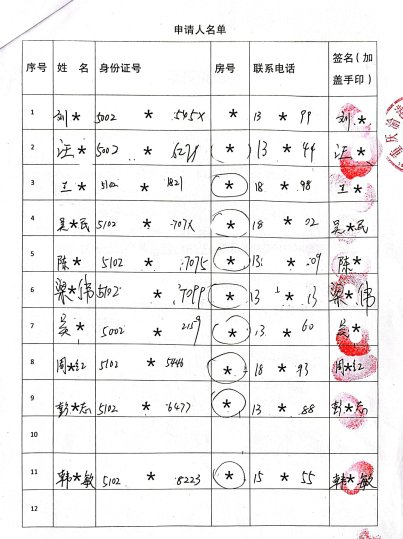 申请人名单
序号 姓 名 身份证号 房号 联系电话 签名（加盖手印）
1 刘* 5002 * 545X * 13 * 99 刘*
2 汪* 5002 * * 13 * 44 汪*
3 王* 5102 * 1821 * 18 * 98 王*
4 吴*民 5102 * 707X * 18 * 02 吴*民
5 陈* 5102 * 7075 * 13 * 09 陈*
6 梁*伟 5102 * 7099 * 13 * 13 梁*伟
7 吴* 5002 * 2159 * 13 * 60 吴*
8 周*红 5102 * 5446 * 18 * 93 周*红
9 彭*志 5102 * 6477 * 13 * 88 彭*志
10
11 韩*敏 5102 * 8223 * 15 * 55 韩*敏
12